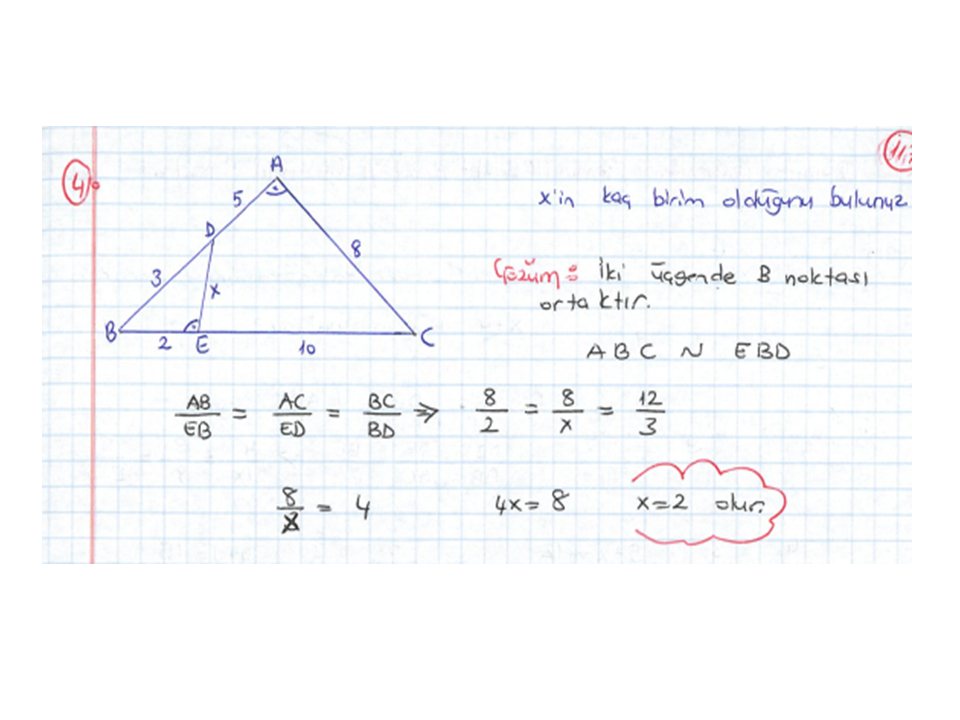 4.
A
5
D
8
3
x
B
2
E
10
C
x'in kaç birim olduğunu bulunuz
Çözüm: İki üçgende B noktası
ortaktır.
ABC ~ EBD
AB/EB = AC/ED = BC/BD ⇒ 8/2 = 8/x = 12/3
8/x = 4 4x=8 x=2 olur.